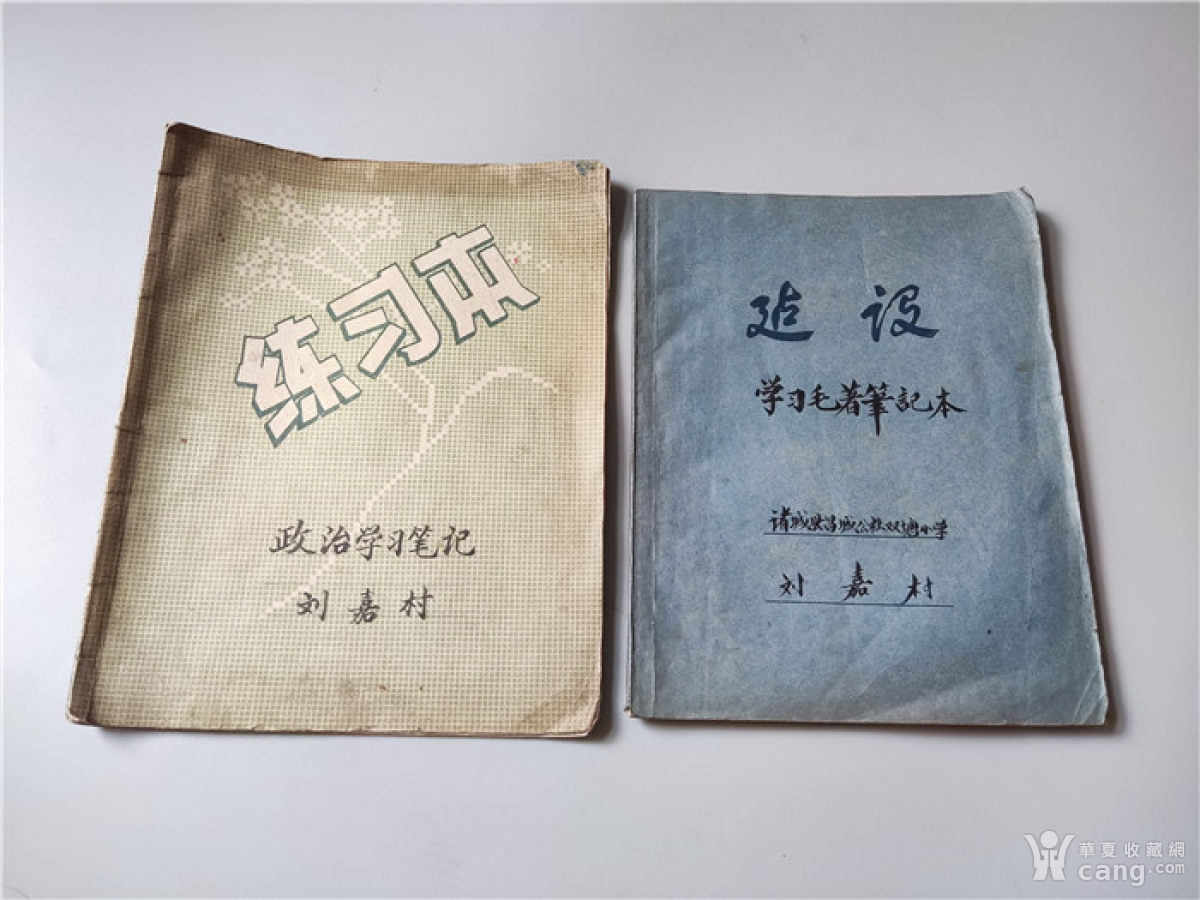 练习本
政治学习笔记
刘嘉村
建设
学习毛著筆記本
诸城县昌城公社双塘小学
刘嘉村
華夏收藏網
cang.com